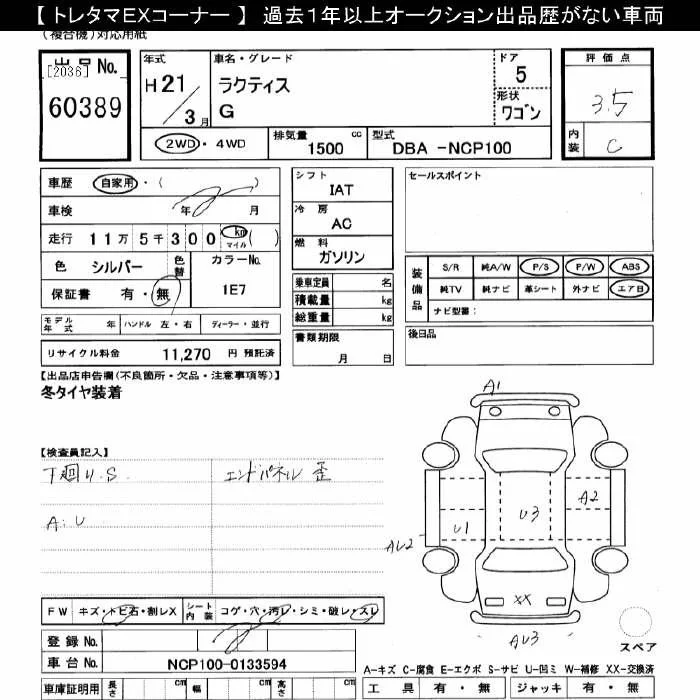 【 トレタマEXコーナー 】 過去1年以上オークション出品歴がない車両
(複合機)対応用紙
出品No.
[2036]
60389
年式
H 21 / 3 月
車名・グレード
ラクティス
G
ドア
5
形状
ワゴン
評価点
3.5
内装
C
2WD・4WD
排気量 1500 cc
型式 DBA -NCP100
車歴 自家用・( )
車検 年 月
走行 11万 5千 300 km マイル ( )
色 シルバー
色替
カラーNo.
1E7
保証書 有・無
シフト
IAT
冷房
AC
燃料
ガソリン
乗車定員 名
積載量 kg
総重量 kg
セールスポイント
装備品
S/R 純A/W P/S P/W ABS
純TV 純ナビ 革シート 外ナビ エアB
ナビ型番:
モデル年式 年 ハンドル 左・右 ディーラー・並行
書類期限
月 日
後日品
リサイクル料金 11,270 円 預託済
【出品店申告欄(不良箇所・欠品・注意事項等)】
冬タイヤ装着
【検査員記入】
下廻り.S エンドパネル 歪
A:U
A1
U1
U3
A2
AU2
XX
AU3
スペア
FW キズ・トビ石・割レX シート内装 コゲ・穴・汚レ・シミ・破レ・スレ
登録No.
車台No. NCP100-0133594
車庫証明用 長さ cm 幅 cm 高さ cm
A-キズ C-腐食 E-エクボ S-サビ U-凹ミ W-補修 XX-交換済
工具 有・無 ジャッキ 有・無